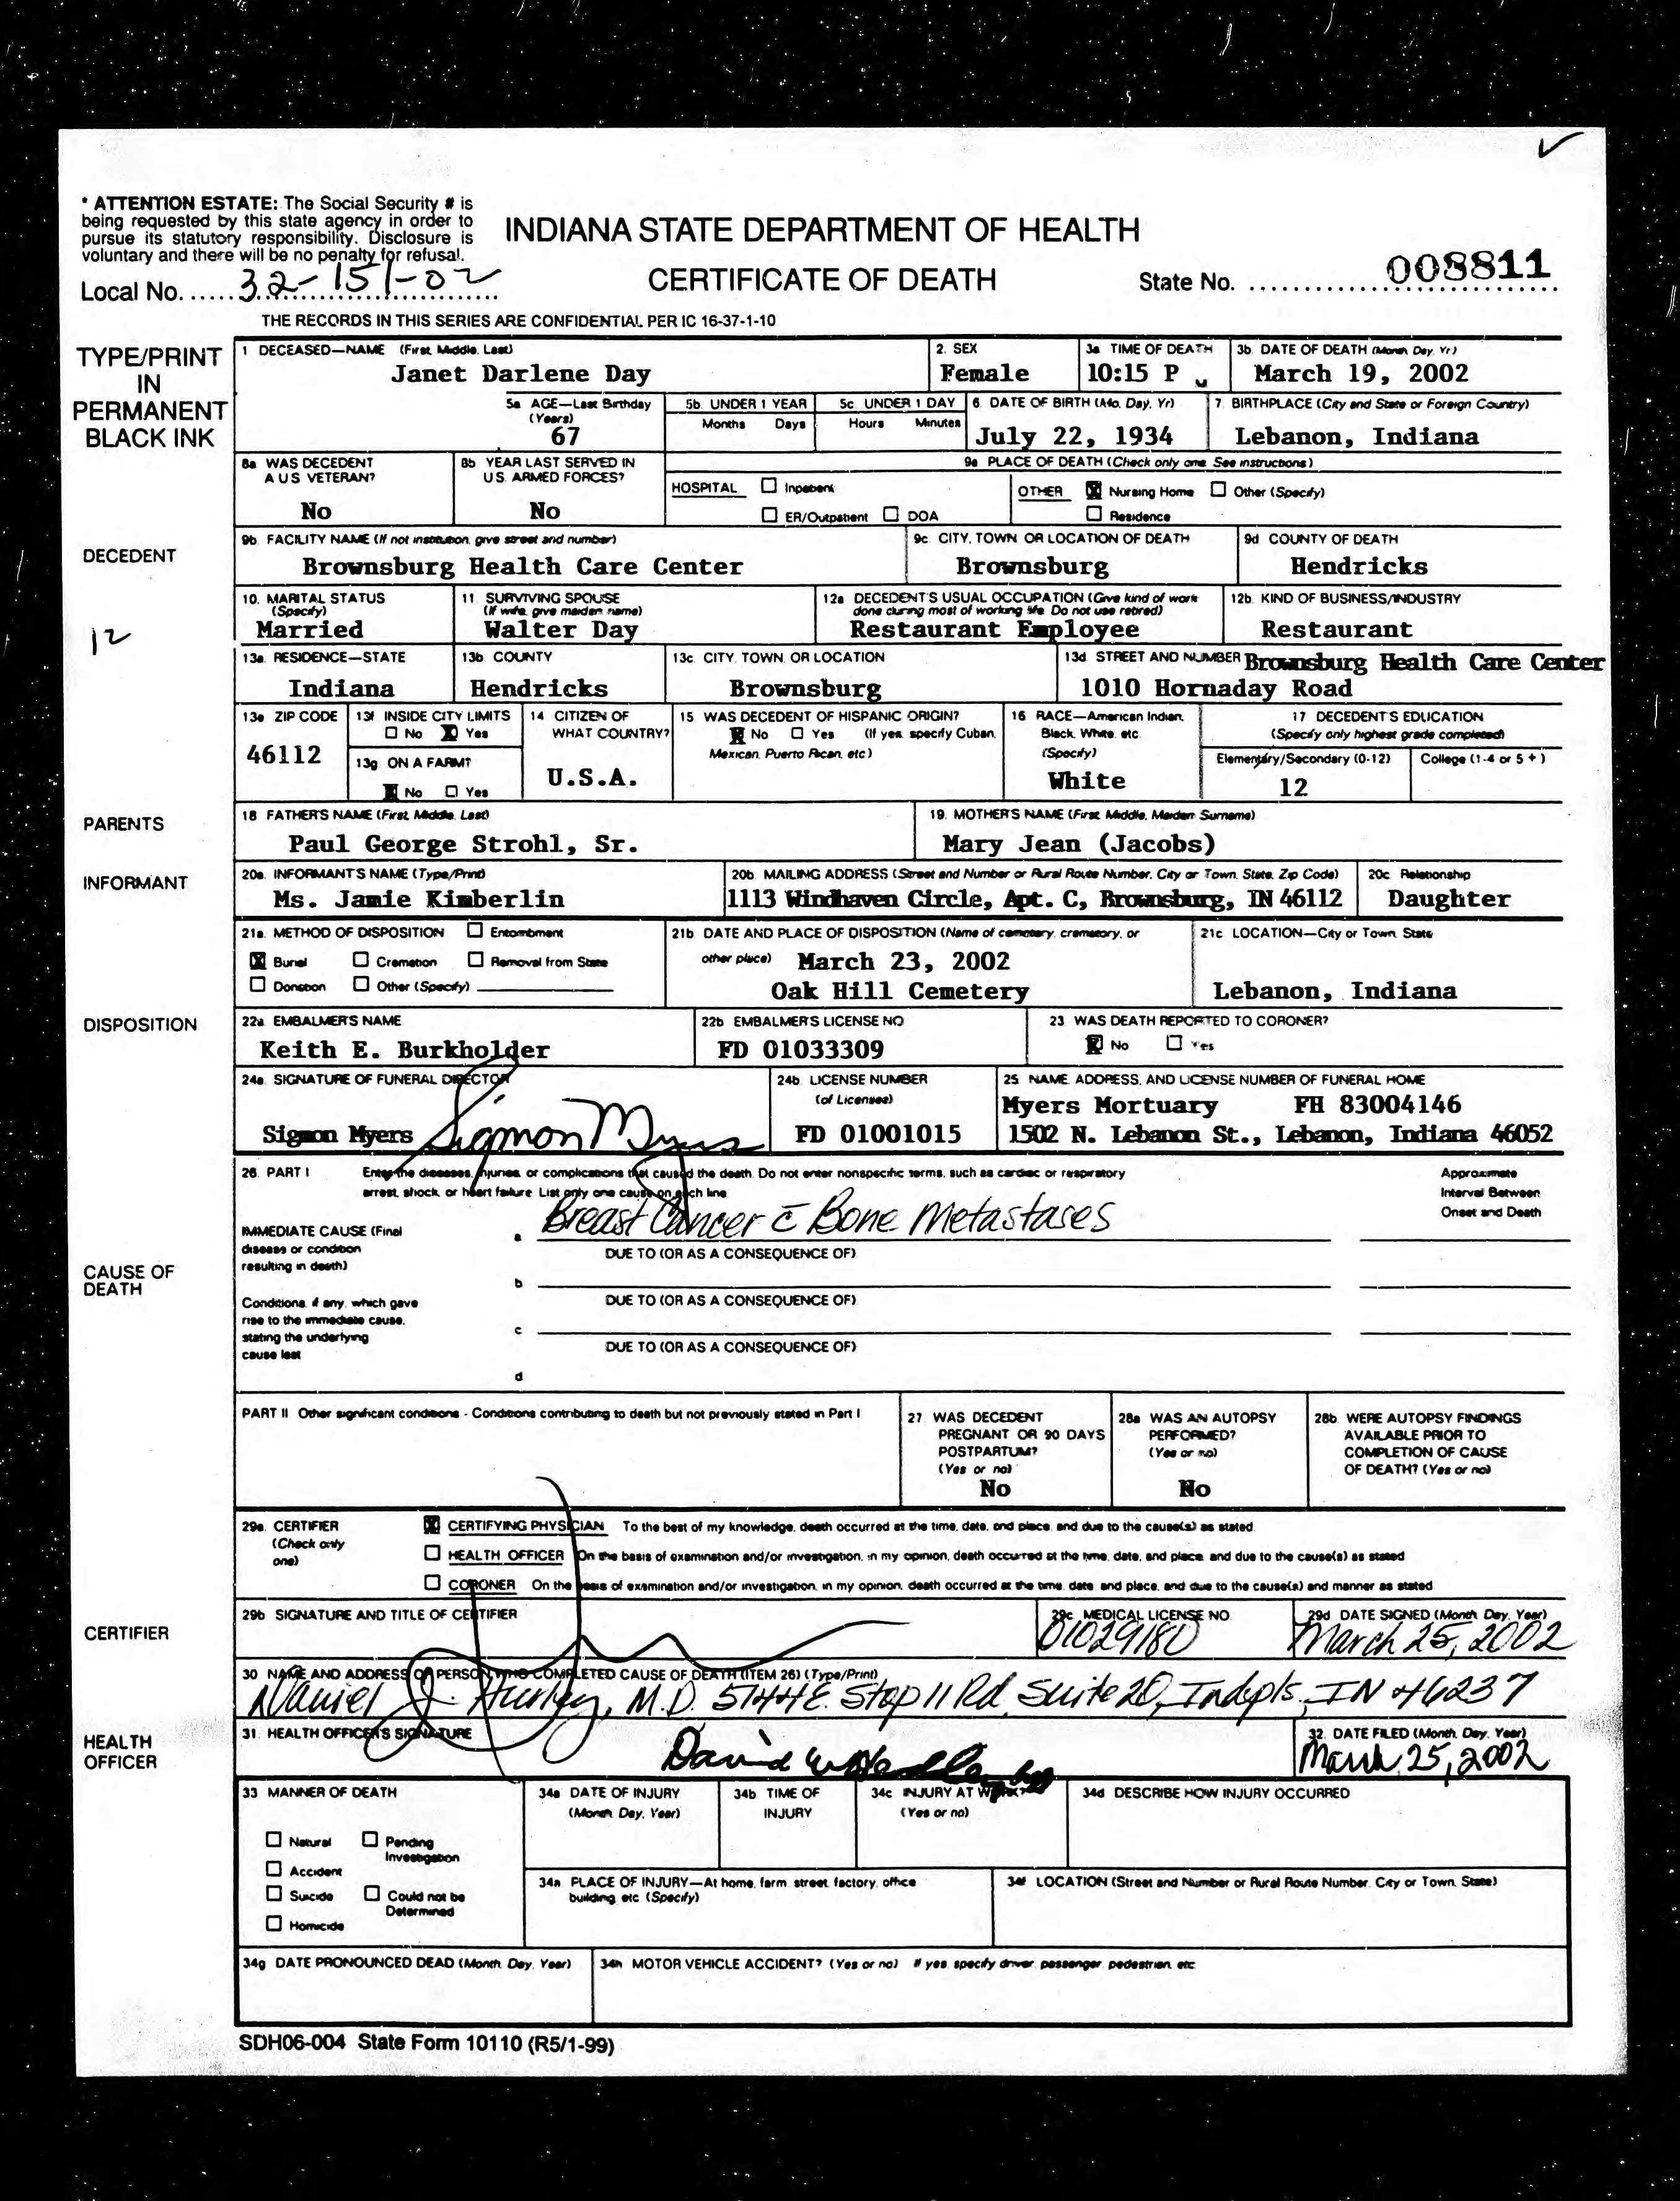 * ATTENTION ESTATE: The Social Security # is
being requested by this state agency in order to
pursue its statutory responsibility. Disclosure is
voluntary and there will be no penalty for refusal.
INDIANA STATE DEPARTMENT OF HEALTH
CERTIFICATE OF DEATH
Local No. 32-151-02
State No. 008811
THE RECORDS IN THIS SERIES ARE CONFIDENTIAL PER IC 16-37-1-10
TYPE/PRINT
IN
PERMANENT
BLACK INK
1 DECEASED—NAME (First, Middle, Last)
Janet Darlene Day
2. SEX
Female
3a TIME OF DEATH
10:15 P M
3b. DATE OF DEATH (Month, Day, Yr)
March 19, 2002
5a AGE—Last Birthday
(Years)
67
5b. UNDER 1 YEAR
Months Days
5c. UNDER 1 DAY
Hours Minutes
6 DATE OF BIRTH (Mo. Day, Yr)
July 22, 1934
7. BIRTHPLACE (City and State or Foreign Country)
Lebanon, Indiana
DECEDENT
8a WAS DECEDENT
A U S VETERAN?
No
8b YEAR LAST SERVED IN
U.S. ARMED FORCES?
No
9a PLACE OF DEATH (Check only one. See instructions)
HOSPITAL Inpatient
ER/Outpatient DOA
OTHER X Nursing Home Other (Specify)
Residence
9b. FACILITY NAME (If not institution, give street and number)
Brownsburg Health Care Center
9c CITY, TOWN OR LOCATION OF DEATH
Brownsburg
9d COUNTY OF DEATH
Hendricks
12
10. MARITAL STATUS
(Specify)
Married
11. SURVIVING SPOUSE
(If wife, give maiden name)
Walter Day
12a DECEDENT'S USUAL OCCUPATION (Give kind of work
done during most of working life. Do not use retired)
Restaurant Employee
12b. KIND OF BUSINESS/INDUSTRY
Restaurant
13a. RESIDENCE—STATE
Indiana
13b. COUNTY
Hendricks
13c. CITY, TOWN, OR LOCATION
Brownsburg
13d. STREET AND NUMBER Brownsburg Health Care Center
1010 Hornaday Road
13e ZIP CODE
46112
13f INSIDE CITY LIMITS
No X Yes
13g. ON A FARM?
X No Yes
14 CITIZEN OF
WHAT COUNTRY?
U.S.A.
15 WAS DECEDENT OF HISPANIC ORIGIN?
X No Yes (If yes, specify Cuban,
Mexican, Puerto Rican, etc)
16 RACE—American Indian,
Black, White, etc.
(Specify)
White
17 DECEDENT'S EDUCATION
(Specify only highest grade completed)
Elementary/Secondary (0-12)
12
College (1-4 or 5 + )
PARENTS
18 FATHER'S NAME (First, Middle, Last)
Paul George Strohl, Sr.
19. MOTHER'S NAME (First, Middle, Maiden Surname)
Mary Jean (Jacobs)
INFORMANT
20a. INFORMANT'S NAME (Type/Print)
Ms. Jamie Kimberlin
20b MAILING ADDRESS (Street and Number or Rural Route Number, City or Town, State, Zip Code)
1113 Windhaven Circle, Apt. C, Brownsburg, IN 46112
20c Relationship
Daughter
DISPOSITION
21a. METHOD OF DISPOSITION Entombment
X Burial Cremation Removal from State
Donation Other (Specify)
21b DATE AND PLACE OF DISPOSITION (Name of cemetery, crematory, or
other place) March 23, 2002
Oak Hill Cemetery
21c LOCATION—City or Town, State
Lebanon, Indiana
22a. EMBALMER'S NAME
Keith E. Burkholder
22b EMBALMER'S LICENSE NO
FD 01033309
23 WAS DEATH REPORTED TO CORONER?
X No Yes
24a. SIGNATURE OF FUNERAL DIRECTOR
Sigmon Myers Sigmon Myers
24b. LICENSE NUMBER
(of Licensee)
FD 01001015
25 NAME, ADDRESS, AND LICENSE NUMBER OF FUNERAL HOME
Myers Mortuary FH 83004146
1502 N. Lebanon St., Lebanon, Indiana 46052
CAUSE OF
DEATH
26. PART I Enter the diseases, injuries, or complications that caused the death. Do not enter nonspecific terms, such as cardiac or respiratory
arrest, shock, or heart failure. List only one cause on each line
Approximate
Interval Between
Onset and Death
IMMEDIATE CAUSE (Final
disease or condition
resulting in death)
a Breast Cancer c̄ Bone Metastases
DUE TO (OR AS A CONSEQUENCE OF)
b
DUE TO (OR AS A CONSEQUENCE OF)
Conditions, if any, which gave
rise to the immediate cause,
stating the underlying
cause last
c
DUE TO (OR AS A CONSEQUENCE OF)
d
PART II Other significant conditions - Conditions contributing to death but not previously stated in Part I
27. WAS DECEDENT
PREGNANT OR 90 DAYS
POSTPARTUM?
(Yes or no)
No
28a WAS AN AUTOPSY
PERFORMED?
(Yes or no)
No
28b. WERE AUTOPSY FINDINGS
AVAILABLE PRIOR TO
COMPLETION OF CAUSE
OF DEATH? (Yes or no)
CERTIFIER
29a. CERTIFIER
(Check only
one)
X CERTIFYING PHYSICIAN To the best of my knowledge, death occurred at the time, date, and place, and due to the cause(s) as stated.
HEALTH OFFICER On the basis of examination and/or investigation, in my opinion, death occurred at the time, date, and place, and due to the cause(s) as stated
CORONER On the basis of examination and/or investigation, in my opinion, death occurred at the time, date, and place, and due to the cause(s) and manner as stated
29b SIGNATURE AND TITLE OF CERTIFIER
29c. MEDICAL LICENSE NO
01029180
29d DATE SIGNED (Month, Day, Year)
March 25, 2002
30 NAME AND ADDRESS OF PERSON WHO COMPLETED CAUSE OF DEATH (ITEM 26) (Type/Print)
Daniel J. M.D. 5144 E. Stop 11 Rd, Suite 20, Indpls, IN 46237
HEALTH
OFFICER
31. HEALTH OFFICER'S SIGNATURE
David
32. DATE FILED (Month, Day, Year)
March 25, 2002
33 MANNER OF DEATH
Natural Pending
Investigation
Accident
Suicide Could not be
Determined
Homicide
34a DATE OF INJURY
(Month, Day, Year)
34b TIME OF
INJURY
34c INJURY AT WORK?
(Yes or no)
34d DESCRIBE HOW INJURY OCCURRED
34e. PLACE OF INJURY—At home, farm, street, factory, office
building, etc (Specify)
34f LOCATION (Street and Number or Rural Route Number, City or Town, State)
34g DATE PRONOUNCED DEAD (Month, Day, Year)
34h MOTOR VEHICLE ACCIDENT? (Yes or no) If yes, specify driver, passenger, pedestrian, etc
SDH06-004 State Form 10110 (R5/1-99)